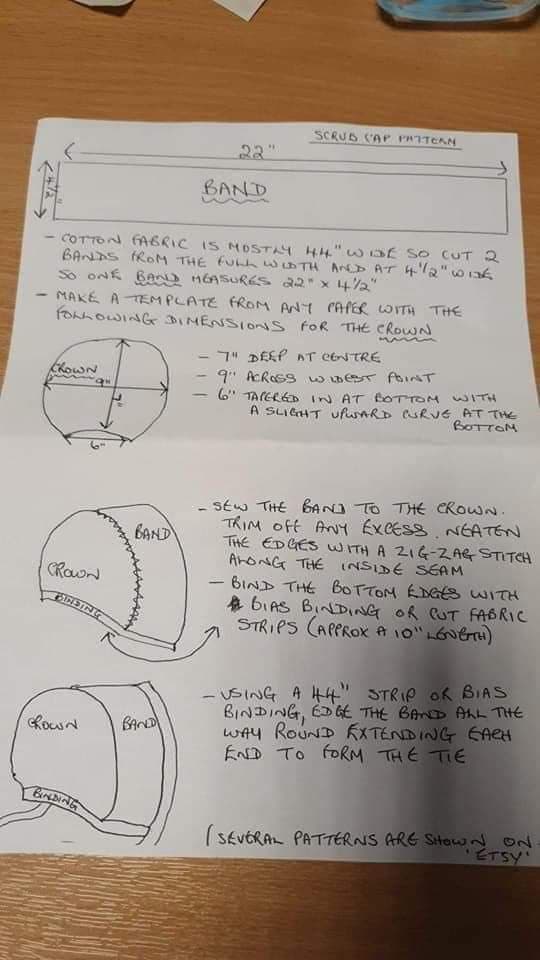 SCRUB CAP PATTERN
22"
4 1/2"
BAND
- COTTON FABRIC IS MOSTLY 44" WIDE SO CUT 2
BANDS FROM THE FULL WIDTH AND AT 4 1/2" WIDE
SO ONE BAND MEASURES 22" x 4 1/2"
- MAKE A TEMPLATE FROM ANY PAPER WITH THE
FOLLOWING DIMENSIONS FOR THE CROWN
CROWN
9"
7"
6"
- 7" DEEP AT CENTRE
- 9" ACROSS WIDEST POINT
- 6" TAPERED IN AT BOTTOM WITH
A SLIGHT UPWARD CURVE AT THE
BOTTOM
CROWN
BAND
BINDING
- SEW THE BAND TO THE CROWN.
TRIM OFF ANY EXCESS. NEATEN
THE EDGES WITH A ZIG-ZAG STITCH
ALONG THE INSIDE SEAM
- BIND THE BOTTOM EDGES WITH
BIAS BINDING OR CUT FABRIC
STRIPS (APPROX A 10" LENGTH)
CROWN
BAND
BINDING
- USING A 44" STRIP OR BIAS
BINDING, EDGE THE BAND ALL THE
WAY ROUND EXTENDING EACH
END TO FORM THE TIE
(SEVERAL PATTERNS ARE SHOWN ON
'ETSY'